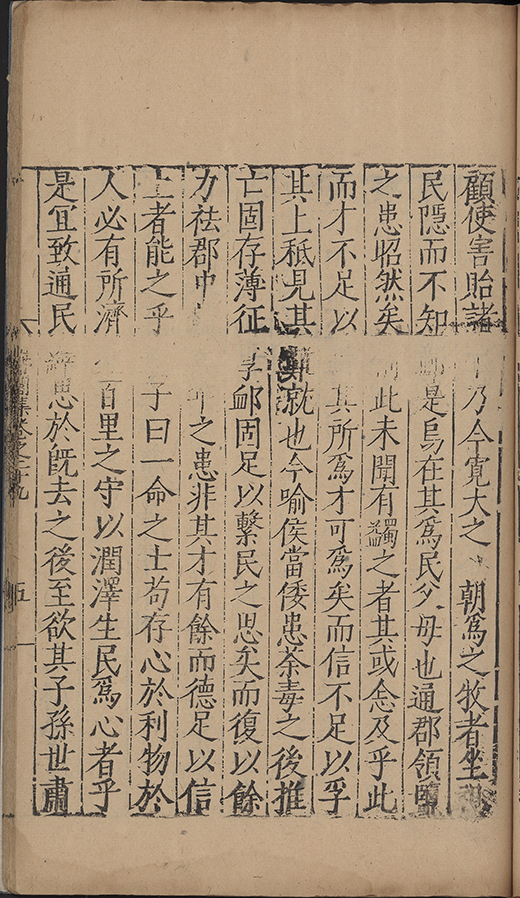 顧使害貽諸乃今寬大之朝爲之牧者坐視
民隱而不知是烏在其爲民父母也通郡領鹽
之患昭然矣此未聞有蠲之者其或念及乎此
而才不足以其所爲才可爲矣而信不足以孚
其上秪見其難就也今喻侯當倭患荼毒之後推
亡固存薄征䘏固足以繫民之思矣而復以餘
力祛郡中年之患非其才有餘而德足以信
上者能之乎子曰一命之士苟存心於利物於
人必有所濟百里之守以潤澤生民爲心者乎
是宜致通民思於旣去之後至欲其子孫世肅
集卷之二十九
五